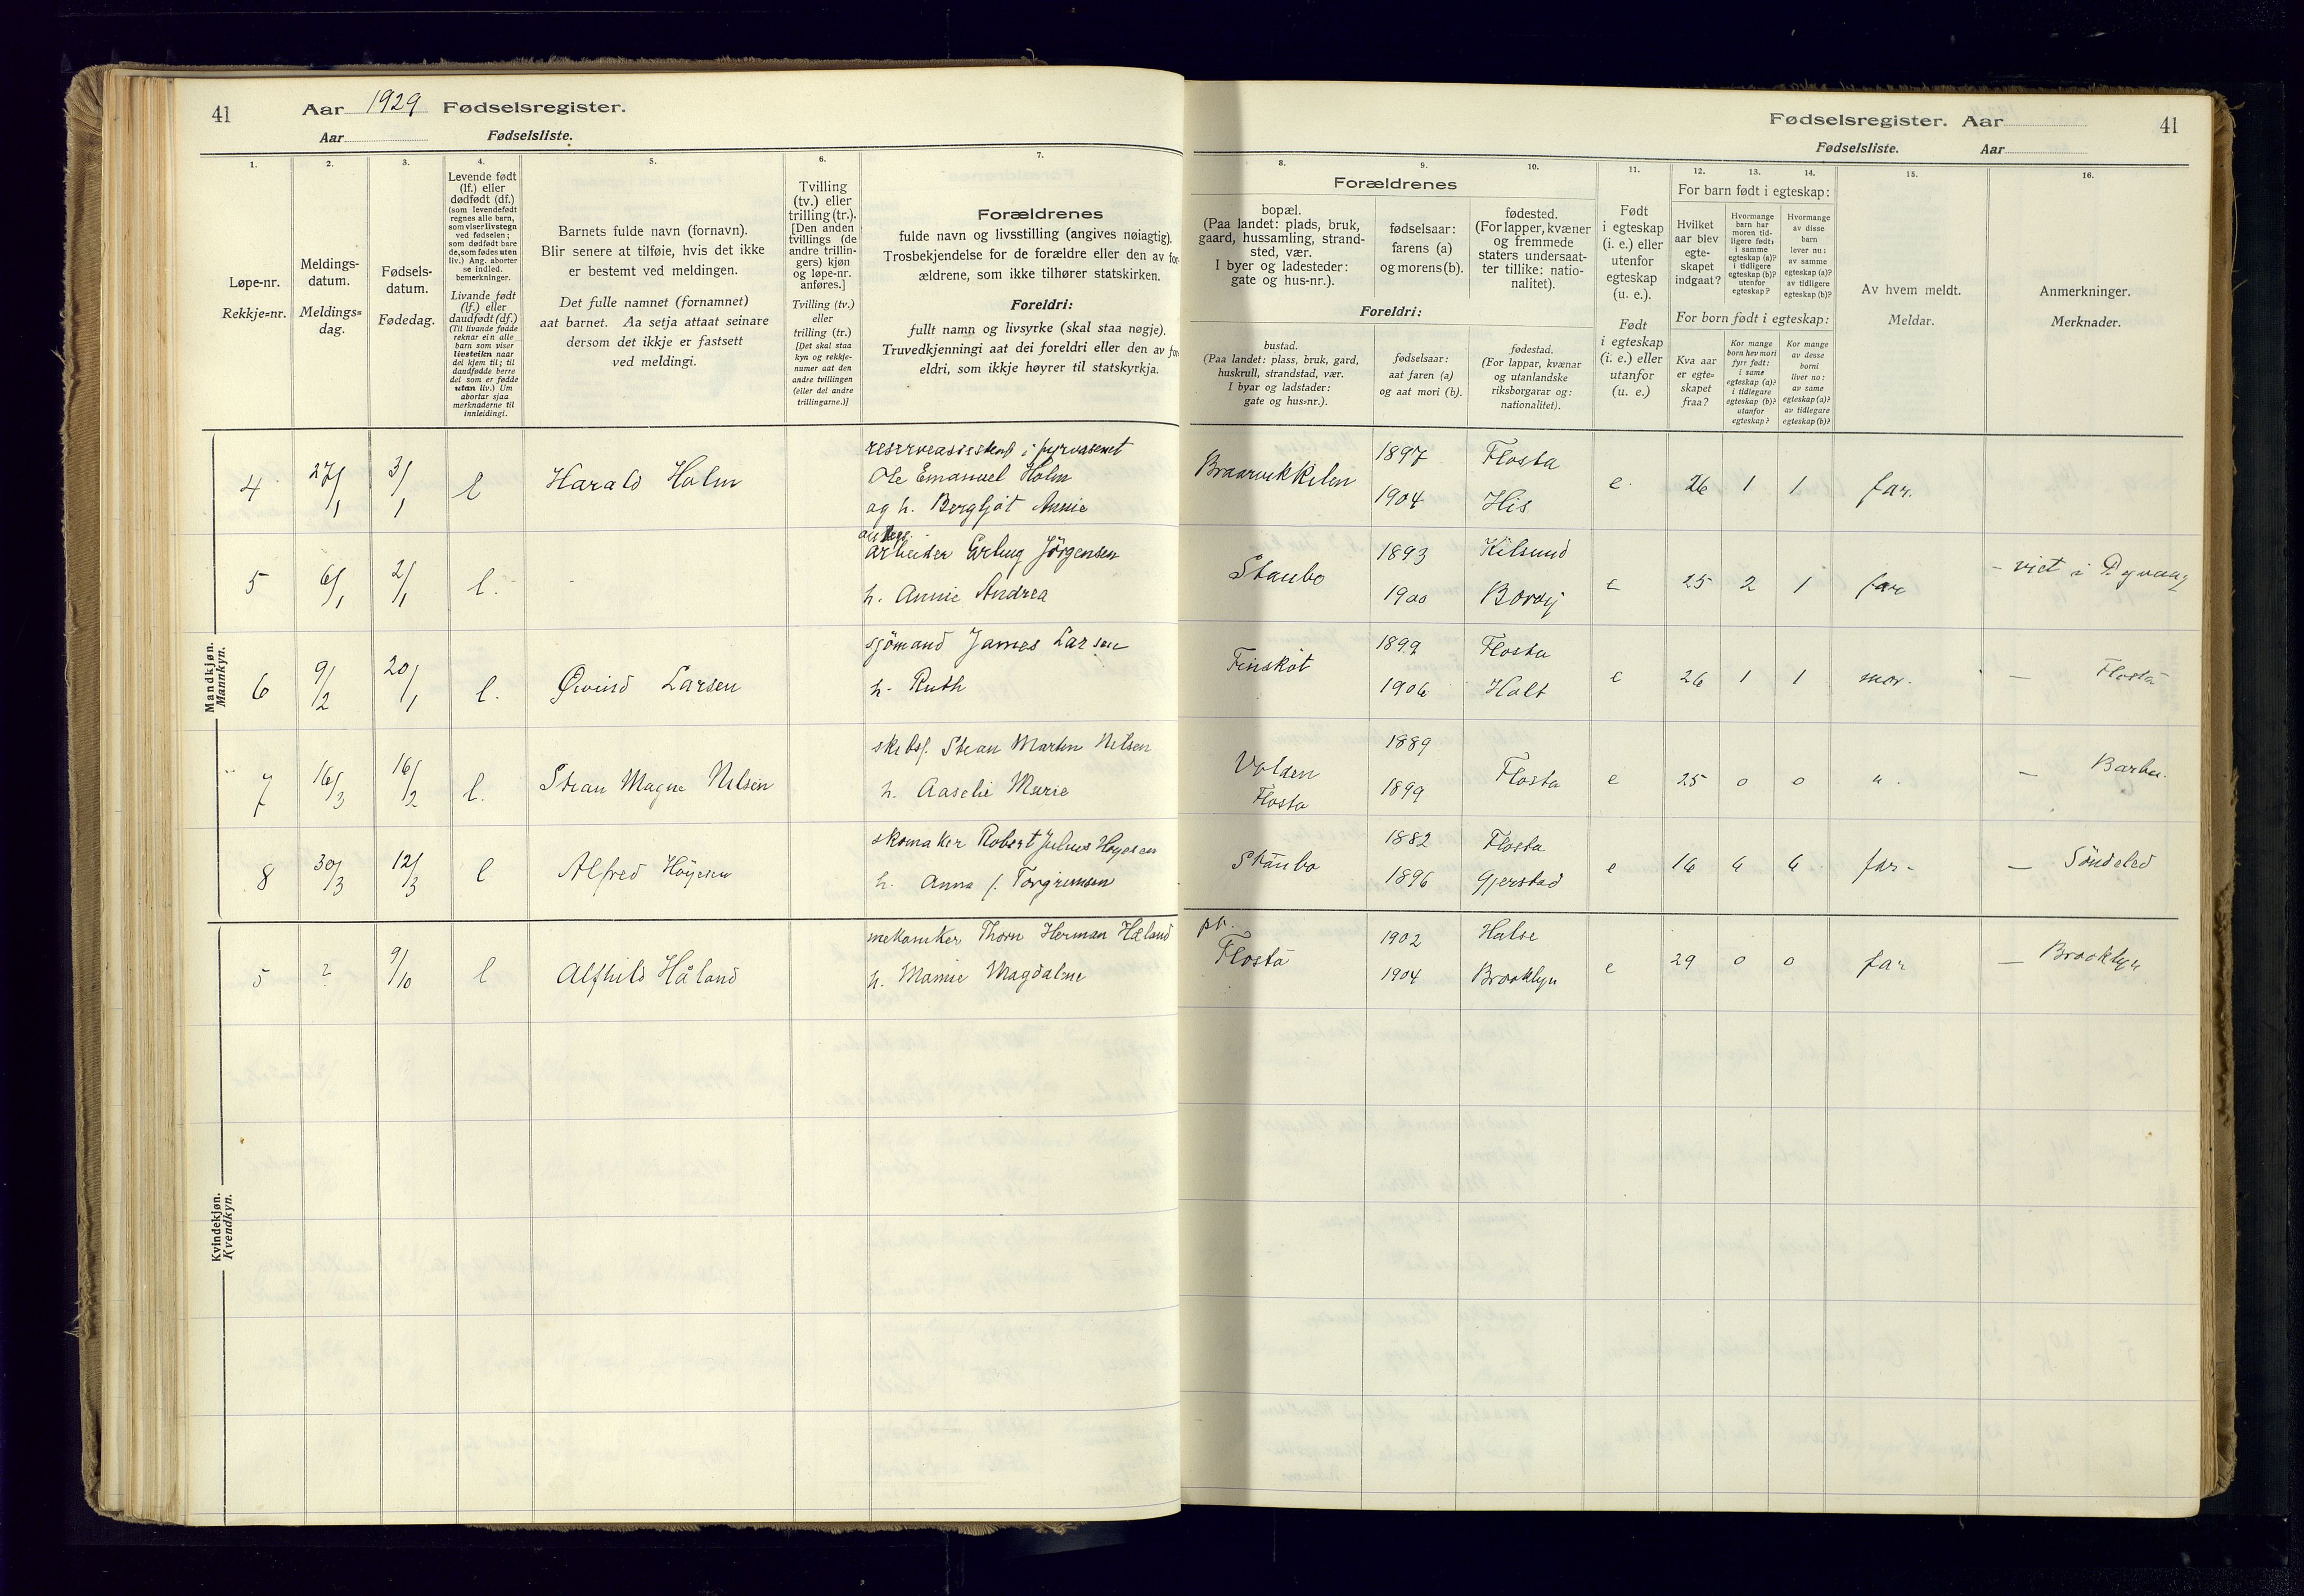 41
Aar 1929 Fødselsregister.
Aar Fødselsliste.
1.
Løpe-nr.
Rekkje=nr.
2.
Meldings-
datum.
Meldings=
dag.
3.
Fødsels-
datum.
Fødedag.
4.
Levende født
(lf.) eller
dødfødt (df.)
(som levendefødt
regnes alle barn,
som viser livstegn
ved fødselen;
som dødfødt bare
de, som fødes uten
liv.) Ang. aborter
se indled.
bemerkninger.
Livande født
(lf.) eller
daudfødt (df.)
(Til livande fødde
reknar ein alle
barn som viser
livsteikn naar
dei kjem til; til
daudfødde berre
dei som er fødde
utan liv.) Um
abortar sjaa
merknaderne til
innleidingi.
5.
Barnets fulde navn (fornavn).
Blir senere at tilføie, hvis det ikke
er bestemt ved meldingen.
Det fulle namnet (fornamnet)
aat barnet. Aa setja attaat seinare
dersom det ikkje er fastsett
ved meldingi.
6.
Tvilling
(tv.) eller
trilling (tr.).
[Den anden
tvillings (de
andre trillin-
gers) kjøn
og løpe-nr.
anføres.]
Tvilling (tv.)
eller
trilling (tr.)
[Det skal staa
kyn og rekkje-
numer aat den
andre tvillingen
(eller dei andre
trillingarne.)]
7.
Forældrenes
fulde navn og livsstilling (angives nøiagtig).
Trosbekjendelse for de forældre eller den av for-
ældrene, som ikke tilhører statskirken.
Foreldri:
fullt namn og livsyrke (skal staa nøgje).
Truvedkjenningi aat dei foreldri eller den av for-
eldri, som ikkje høyrer til statskyrkja.
Mandkjøn.
Mannkyn.
4 27/1 3/1 l Harald Holm
reserveassistent i fyrvæsenet
Ole Emanuel Holm
og h. Bergljot Annie
5 6/1 2/1 l.
arbeider Erling Jörgensen
h. Annie Andrea
6 9/2 20/1 l. Øivind Larsen
sjömand James Larsen
h. Ruth
7 16/3 16/2 l. Stean Magne Nilsen
skibsf. Stean Martin Nilsen
h. Aaselie Marie
8 30/3 12/3 l Alfred Höyesen
skomaker Robert Julius Höyesen
h. Anna f. Torgrimsen
Kvindekjøn.
Kvendkyn.
5 ? 9/10 l Alfhild Håland
mekaniker Thorn Herman Håland
h. Mamie Magdalene
Fødselsregister. Aar 41
Fødselsliste. Aar
8.
9.
10.
Forældrenes
bopæl.
(Paa landet: plads, bruk,
gaard, hussamling, strand-
sted, vær.
I byer og ladesteder:
gate og hus-nr.).
fødselsaar:
farens (a)
og morens (b).
fødested.
(For lapper, kvæner
og fremmede
staters undersaat-
ter tillike: natio-
nalitet).
Foreldri:
bustad.
(Paa landet: plass, bruk, gard,
huskrull, strandstad, vær.
I byar og ladstader:
gate og hus=nr.).
fødselsaar:
aat faren (a)
og aat mori (b).
fødestad.
(For lappar, kvænar
og utanlandske
riksborgarar og:
nationalitet).
11.
Født
i egteskap
(i. e.) eller
utenfor
egteskap
(u. e.).
Født
i egteskap
(i. e.) eller
utanfor
egteskap
(u. e.)
12.
13.
14.
For barn født i egteskap:
Hvilket
aar blev
egte-
skapet
indgaat?
Hvormange
barn har
moren tid-
ligere født:
i samme
egteskap (a)?
i tidligere
egteskap (b)?
utenfor
egteskap?
Hvormange
av disse
barn
lever nu:
av samme
egteskap (a)?
av tidligere
egteskap (b)?
For born født i egteskap:
Kva aar
er egte=
skapet
fraa?
Kor mange
born hev mori
fyrr født:
i same
egteskap (a)?
i tidlegare
egteskap (b)?
utanfor
egteskap?
Kor mange
av desse
borni
liver no:
av same
egteskap (a)?
av tidlegare
egteskap (b)?
15.
Av hvem meldt.
Meldar.
16.
Anmerkninger.
Merknader.
Braarvikkilen 1897 Flosta
1904 His e. 26 1 1 far.
Staubo 1893 Kilsund
1900 Borøy e 25 2 1 far - viet i Dypvaag
Finsköt 1899 Flosta
1906 Holt e 26 1 1 mor. — Flosta
Volden 1889
Flosta 1899 Flosta e 25 0 0 " . — Barbu.
Staubo 1882 Flosta
1896 Gjerstad e 16 6 6 far - — Söndeled
pt.
Flosta 1902 Halse
1904 Brooklyn e 29 0 0 far — Brooklyn